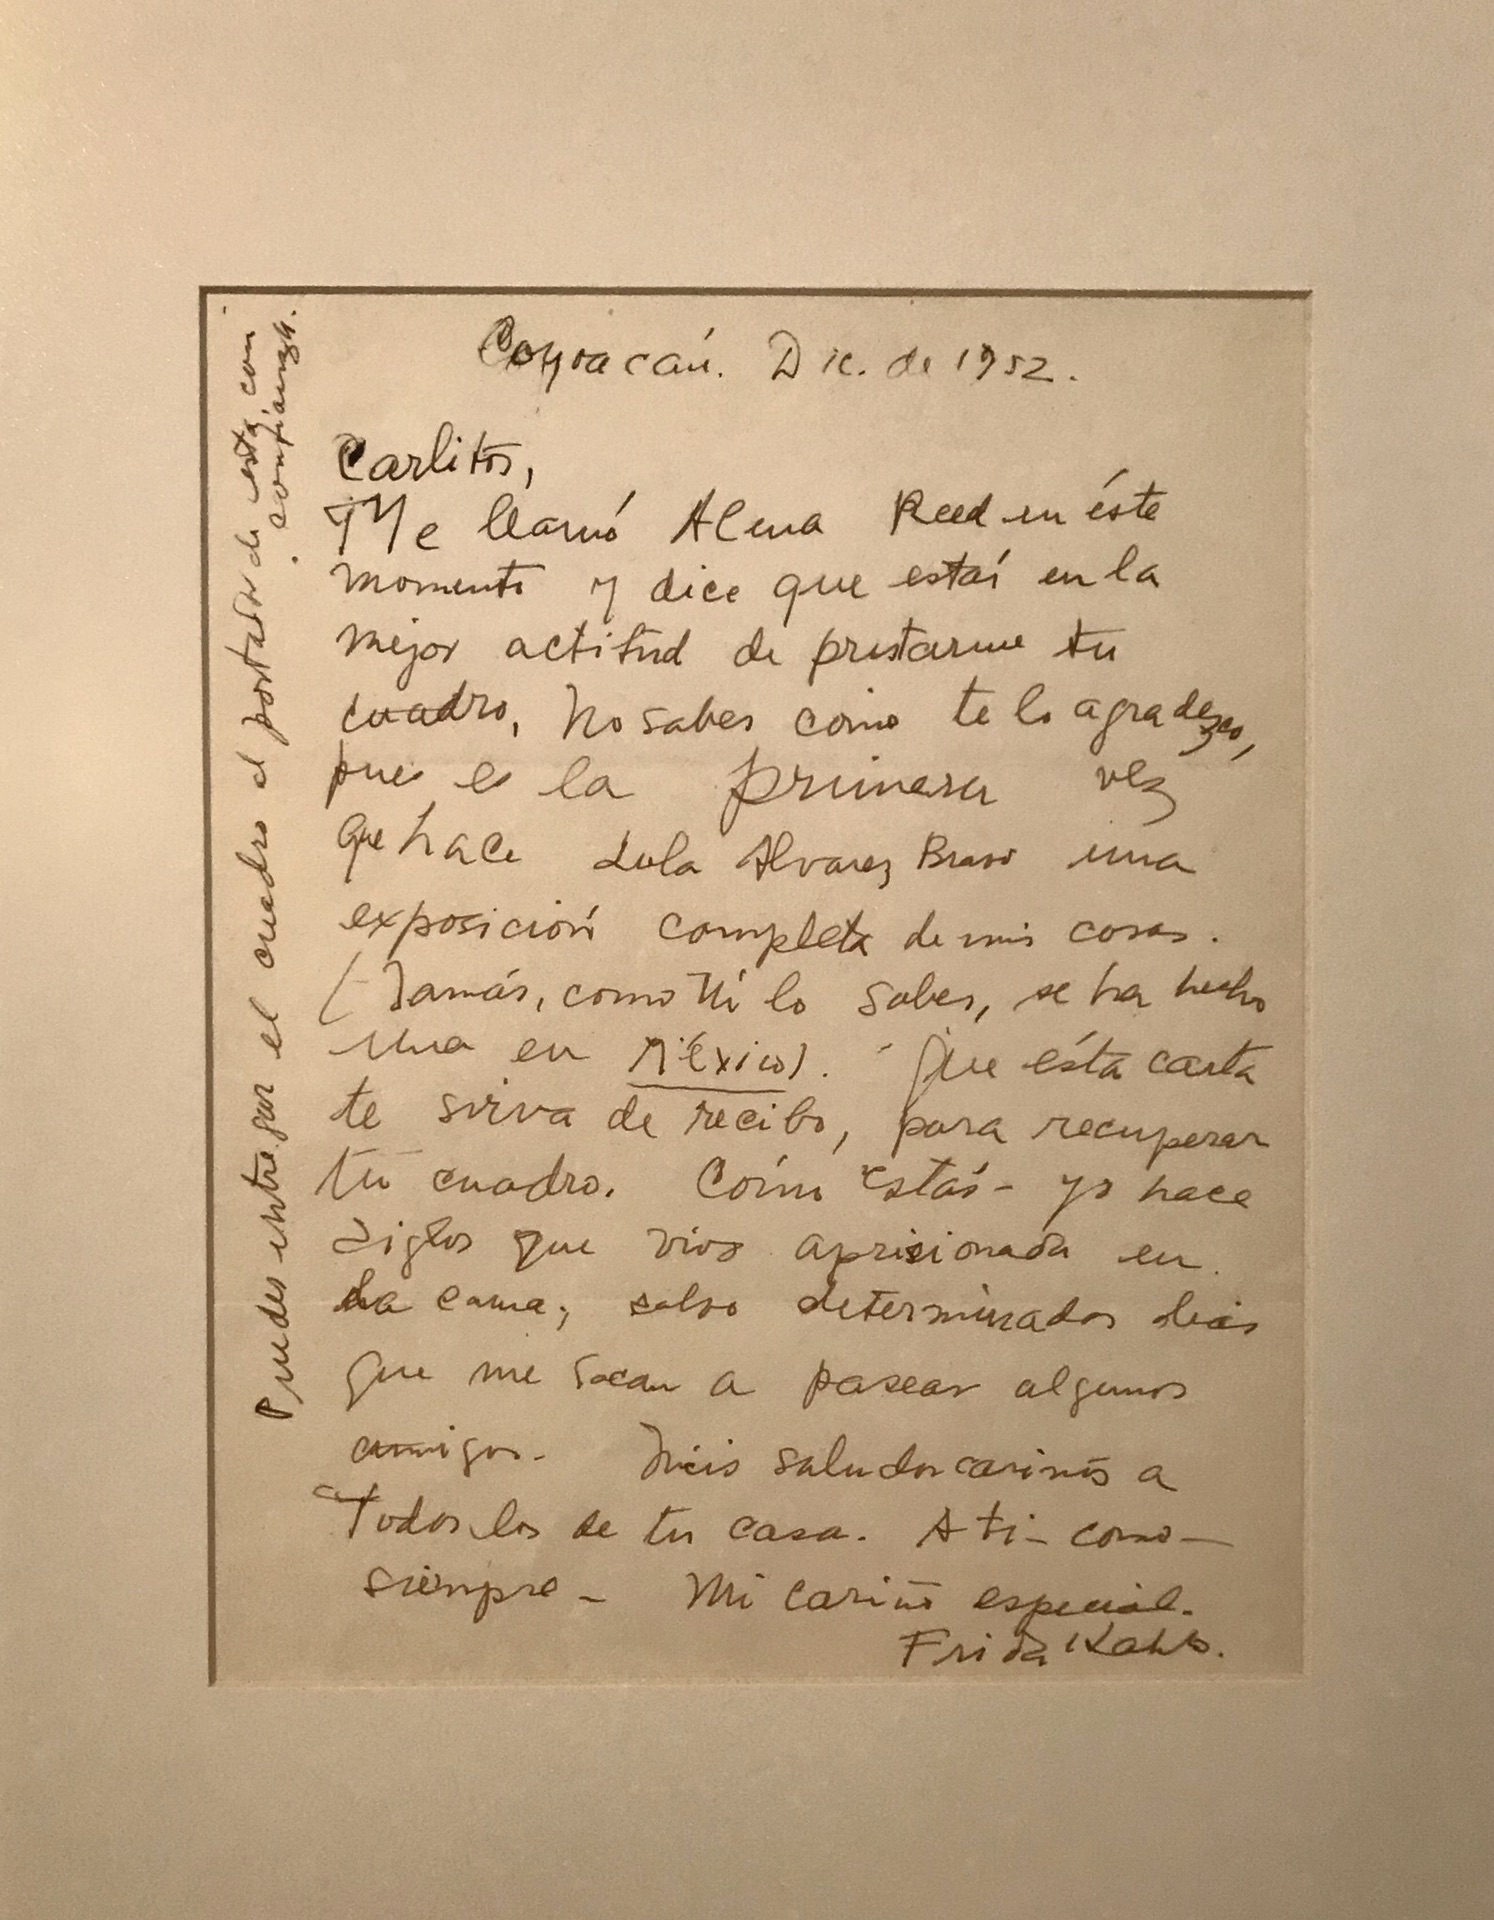 Coyoacán. Dic. de 1952.
Carlitos,
Me llamó Alma Reed en éste
momento y dice que estaí en la
mejor actitud de prestarme tu
cuadro, No sabes como te lo agradezco,
pues es la primera vez
que hace Lola Alvarez Bravo una
exposición completa de mis cosas.
(Jamás, como tú lo sabes, se ha hecho
una en México). Que ésta carta
te sirva de recibo, para recuperar
tu cuadro. Cómo estás - yo hace
siglos que vivo aprisionada en
la cama, salvo determinados dias
que me sacan a pasear algunos
amigos. Mis saludos cariños a
Todos los de tu casa. A ti - como -
siempre - Mi cariño especial.
Frida Kahlo.
Puedes entregar el cuadro al portador de esta, con
confianza.